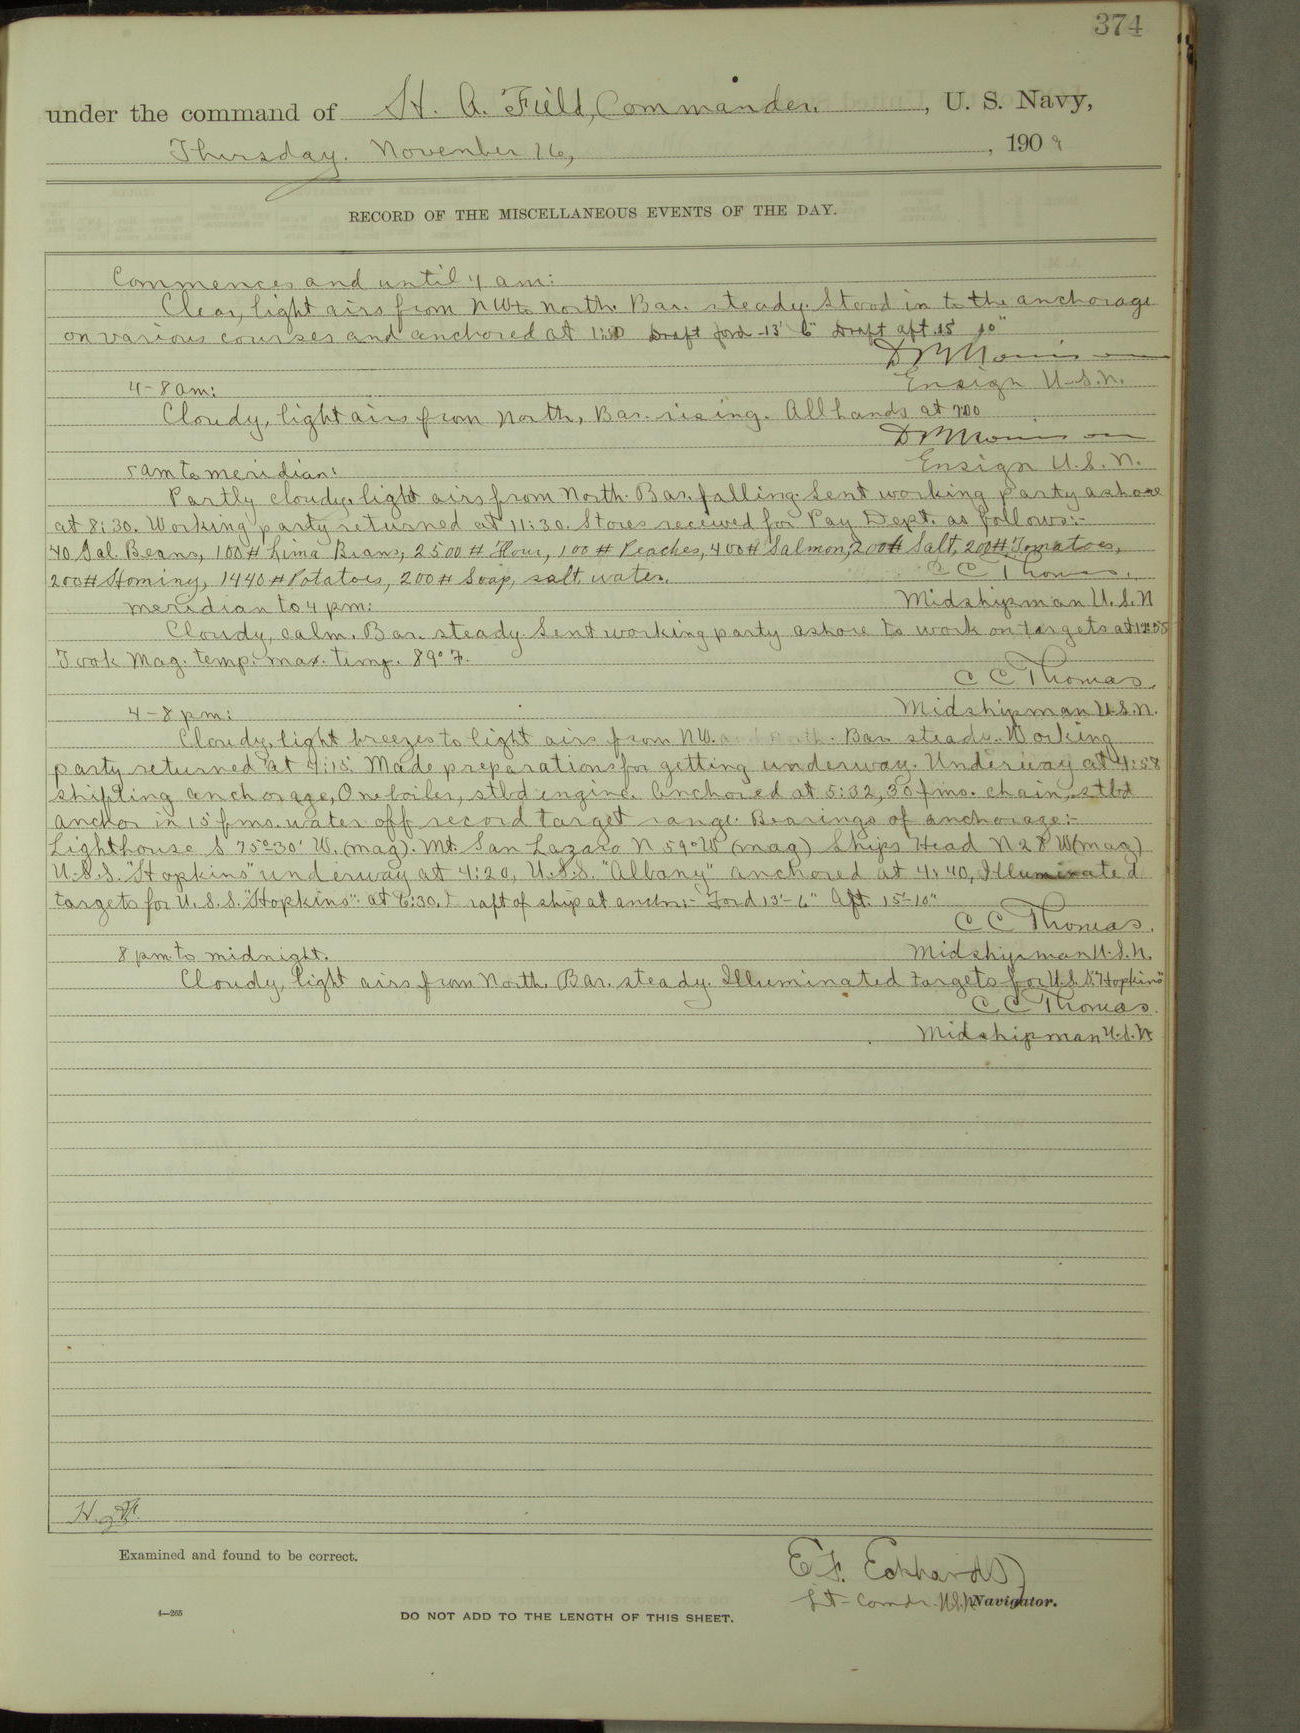 374
under the command of H. A. Field, Commander. , U. S. Navy,
Thursday. November 26, , 190
RECORD OF THE MISCELLANEOUS EVENTS OF THE DAY.
Commences and until 4 am:
Clear, light airs from NW to North. Bar. steady. Stood in to the anchorage
on various courses and anchored at Draft ford -13' 6" Draft aft 15' 10"
Ensign U.S.N.
4-8 am:
Cloudy, light airs from North, Bar. rising. All hands at 7:00
Ensign U.S.N.
am to meridian:
Partly cloudy, light airs from North. Bar. falling. Sent working party ashore
at 8:30. Working party returned at 11:30. Stores received for Pay Dept. as follows:-
40 Gal. Beans, 100 # Lima Beans, 2500 # Flour, 100 # Peaches, 400 # Salmon, 200 # Salt, 200 # Tomatoes,
200 # Hominy, 1440 # Potatoes, 200 # Soap, salt water. C C Thomas.
meridian to 4 pm: Midshipman U.S.N
Cloudy, calm. Bar. steady. Sent working party ashore to work on targets at 12:55
Took Mag. temp. max. temp. 89° F.
C C Thomas.
4-8 pm: Midshipman U.S.N.
Cloudy, light breezes to light airs from NW. and North. Bar steady. Working
party returned at 4:15. Made preparations for getting underway. Underway at 4:58
shifting anchorage, One boiler, stbd engine. Anchored at 5:32, 30 fms. chain, stbd
anchor in 15 fms. water off record target range. Bearings of anchorage:-
Lighthouse S 75°30' W. (mag). Mt. San Lazaro N 59° W (mag) Ships Head N 28 W (mag)
U.S.S. "Hopkins" underway at 4:20, U.S.S. "Albany" anchored at 4:40, Illuminated
targets for U.S.S. "Hopkins" at 6:30. Draft of ship at anchr:- Ford 13'-6" Aft. 15'-10"
C C Thomas.
8 pm to midnight. Midshipman U.S.N.
Cloudy, light airs from North. Bar. steady. Illuminated targets for U.S.S. "Hopkins"
C C Thomas.
Midshipman U.S.N
H. A. F.
Examined and found to be correct.
E. F. Eckhardt
Lit-Comdr. U.S.N. Navigator.
4—265
DO NOT ADD TO THE LENGTH OF THIS SHEET.